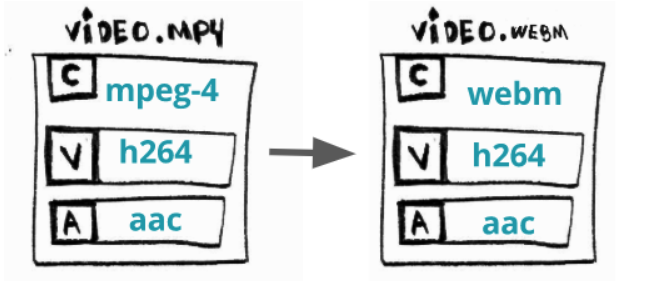 ViDEO.MP4
C mpeg-4
V h264
A aac
ViDEO.WEBM
C webm
V h264
A aac